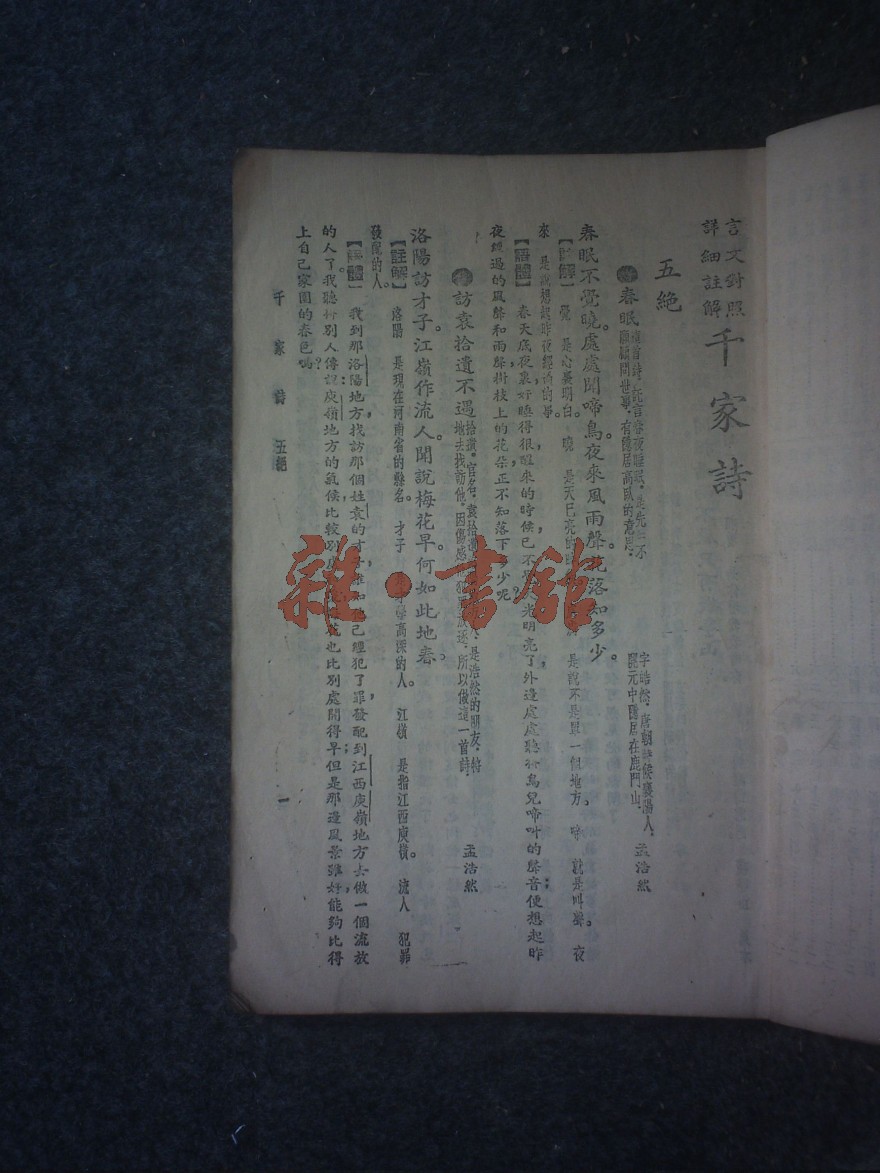 言文對照
詳細註解
千家詩
五絕
春眠
字皓然，唐朝時候襄陽人，
開元中隱居在鹿門山，
孟浩然
春眠不覺曉。處處聞啼鳥。夜來風雨聲。花落知多少。
【註解】 覺 是心裏明白。 曉 是天已亮的 是說不是單一個地方。 啼 就是叫喚。 夜
來 是說想起昨夜經過的事。
【語體】 春天底夜裏，好睡得很，醒來的時候，已不 光明亮了，外邊處處聽得鳥兒啼叫的聲音；便想起昨
夜經過的風聲和雨聲，樹枝上的花朵，正不知落下 少呢？
訪袁拾遺不遇
拾遺，官名，袁拾 是浩然的朋友，特
地去找訪他，因傷感他犯罪放逐，所以做這一首詩，
孟浩然
洛陽訪才子。江嶺作流人。聞說梅花早。何如此地春。
【註解】 洛陽 是現在河南省的縣名。 才子 學高深的人。 江嶺 是指江西庾嶺。 流人 犯罪
發配的人。
【語體】 我到那洛陽地方，找訪那個姓袁的才子，誰知 已經犯了罪，發配到江西庾嶺地方去，做一個流放
的人了。我聽得別人傳說：庾嶺地方的氣候，比較別處 也比別處開得早；但是那邊風景雖好，能夠比得
上自己家園的春色嗎？
千家詩 五絕 一
雜·書館